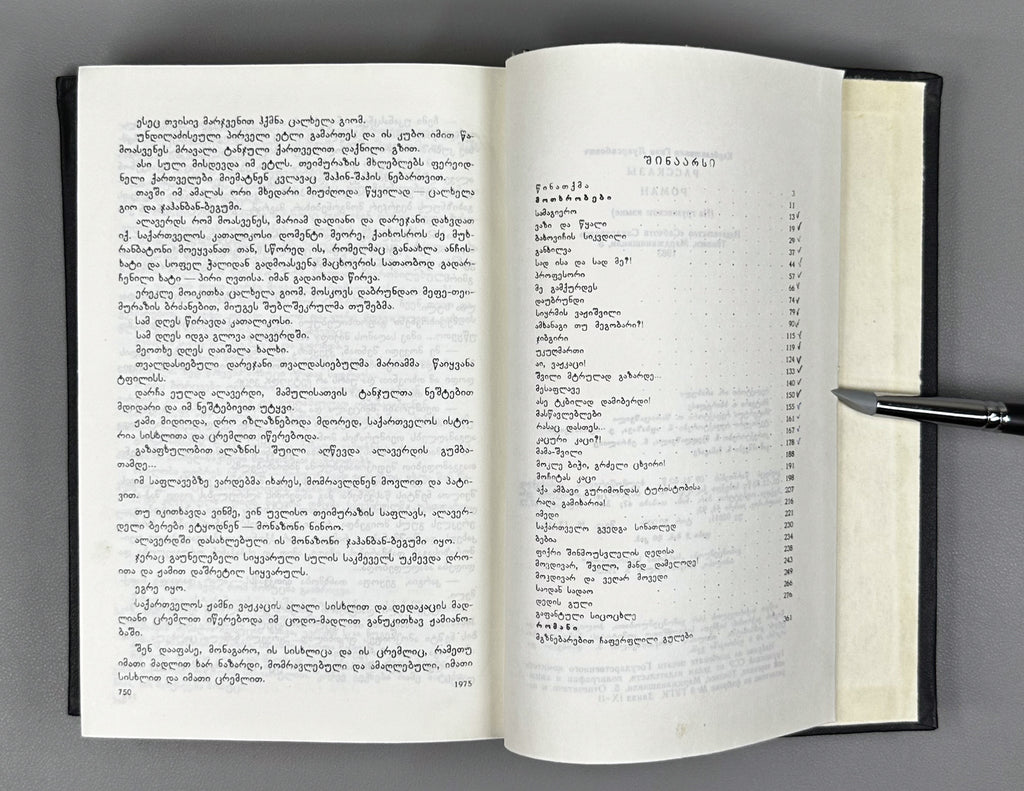 ესეც თვისივ მარჯვენით ჰქმნა ცალხელა გიომ.
უნდილაძისეული პირველი ეტლი გამართეს და ის კუბო იმით წა-
მოასვენეს მრავალი ტანჯული ქართველით დაქნილი გზით.
ასი სული მისდევდა იმ ეტლს. თეიმურაზის მხლებლებს ფერეიდ-
ნელი ქართველები მიემატნენ კვლავაც შაჰინ-შაჰის ნებართვით.
თავში იმ ამალას ორი მხედარი მიუძღოდა წყვილად — ცალხელა
გიო და ჯაჰანბან-ბეგუმი.
ალავერდს რომ მოასვენეს, მარიამ დადიანი და დარეჯანი დახვდათ
იქ. საქართველოს კათალიკოსი დომენტი მეორე, ქაიხოსროს ძე მუხ-
რანბატონი მოეყვანათ თან, სწორედ ის, რომელმაც განაახლა ანჩის-
ხატი და სოფელ ჭალიდან გადმოასვენა მაცხოვრის სათაობოდ გადარ-
ჩენილი ხატი — პირი ღვთისა. იმან გადაიხადა წირვა.
ერეკლე მოიკითხა ცალხელა გიომ. მოსკოვს დაბრუნდაო მეფე-თეი-
მურაზის ბრძანებით, მიუგეს შუბლშეკრულმა თუშებმა.
სამ დღეს წირავდა კათალიკოსი.
სამ დღეს იდგა გლოვა ალავერდში.
მეოთხე დღეს დაიშალა ხალხი.
თვალდასიებული დარეჯანი თვალდასიებულმა მარიამმა წაიყვანა
ტფილისს.
დარჩა ეულად ალავერდი, მამულისათვის ტანჯულთა ნეშტებით
მდიდარი და იმ ნეშტებივით უტყვი.
ჟამი მიდიოდა, დრო იზლაზნებოდა მდორედ, საქართველოს ისტო-
რია სისხლითა და ცრემლით იწერებოდა.
გაზაფხულობით ალაზნის შუილი აღწევდა ალავერდის გუმბა-
თამდე...
იმ საფლავებზე ვარდებმა იხარეს, მომრავლდნენ მოვლით და პატი-
ვით.
თუ იკითხავდა ვინმე, ვინ უვლისო თეიმურაზის საფლავს, ალავერ-
დელი ბერები ეტყოდნენ — მონაზონი ნინოო.
ალავერდში დასახლებული ის მონაზონი ჯაჰანბან-ბეგუმი იყო.
ჯერაც გაუნელებელი სიყვარული სულის საკმეველს უკმევდა დრო-
ითა და ჟამით დაშრეტილ სიყვარულს.
ეგრე იყო.
საქართველოს ჟამნი ვაჟკაცის ალალი სისხლით და დედაკაცის მად-
ლიანი ცრემლით იწერებოდა იმ ცოდო-მადლით განუკითხავ ჟამიანო-
ბაში.
შენ დააფასე, მონაგარო, ის სისხლიცა და ის ცრემლიც, რამეთუ
იმათი მადლით ხარ ნაზარდი, მომრავლებული და ამაღლებული, იმათი
სისხლით და იმათი ცრემლით.
1975
750
შინაარსი
წინათქმა 3
მოთხრობები 11
სამაგიერო 13
ვაზი და წყალი 19
ბახოვიჩის სიკვდილი 29
განხილვა 37
სად ისა და სად მე?! 44
პროფესორი 57
მე გამქურდეს 66
დაუბრუნდი 74
სიყრმის ვაჟიშვილი 79
ამხანაგი თუ მეგობარი?! 90
ჯიბგირი 115
უკუღმართი 119
აი, ვაჟკაცი! 124
შვილი მტრულად გაზარდე... 133
მესაფლავე 140
ასე ტკბილად დამიბერდი! 150
მასწავლებლები 155
რასაც დასთეს... 161
კაცური კაცი?! 167
მამა-შვილი 178
მოკლე ბიჭი, გრძელი ცხვირი! 188
მოჩიტას კაცი 191
აქა ამბავი გურიმონდას ტურისტობისა 198
რაღა გამიხარია! 207
იმედი 216
საქართველო გვედგა სინათლედ 221
ბებია 230
ფიქრი შინმოუსვლელის დედისა 234
მოვედივარ, შვილო, მანდ დამელოდე! 238
მოვდივარ და ვეღარ მოვედი 243
საიდან სადაო 249
დედის გული 266
გაფანტული სიცოცხლე 276
რომანი
მგზნებარებით ჩაფერფლილი გულები 361